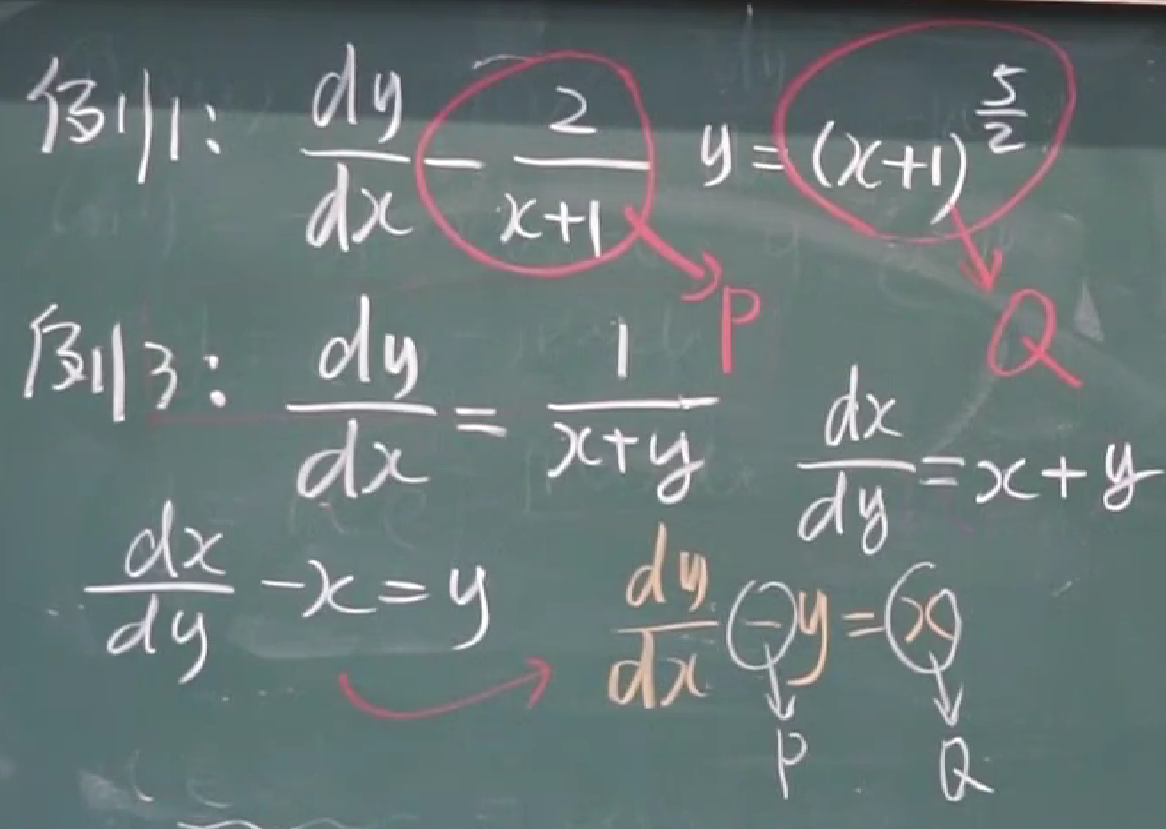 例1: dy/dx - 2/(x+1) y = (x+1)^(5/2)
P
Q
例3: dy/dx = 1/(x+y) dx/dy = x+y
dx/dy - x = y dy/dx - y = x
P Q